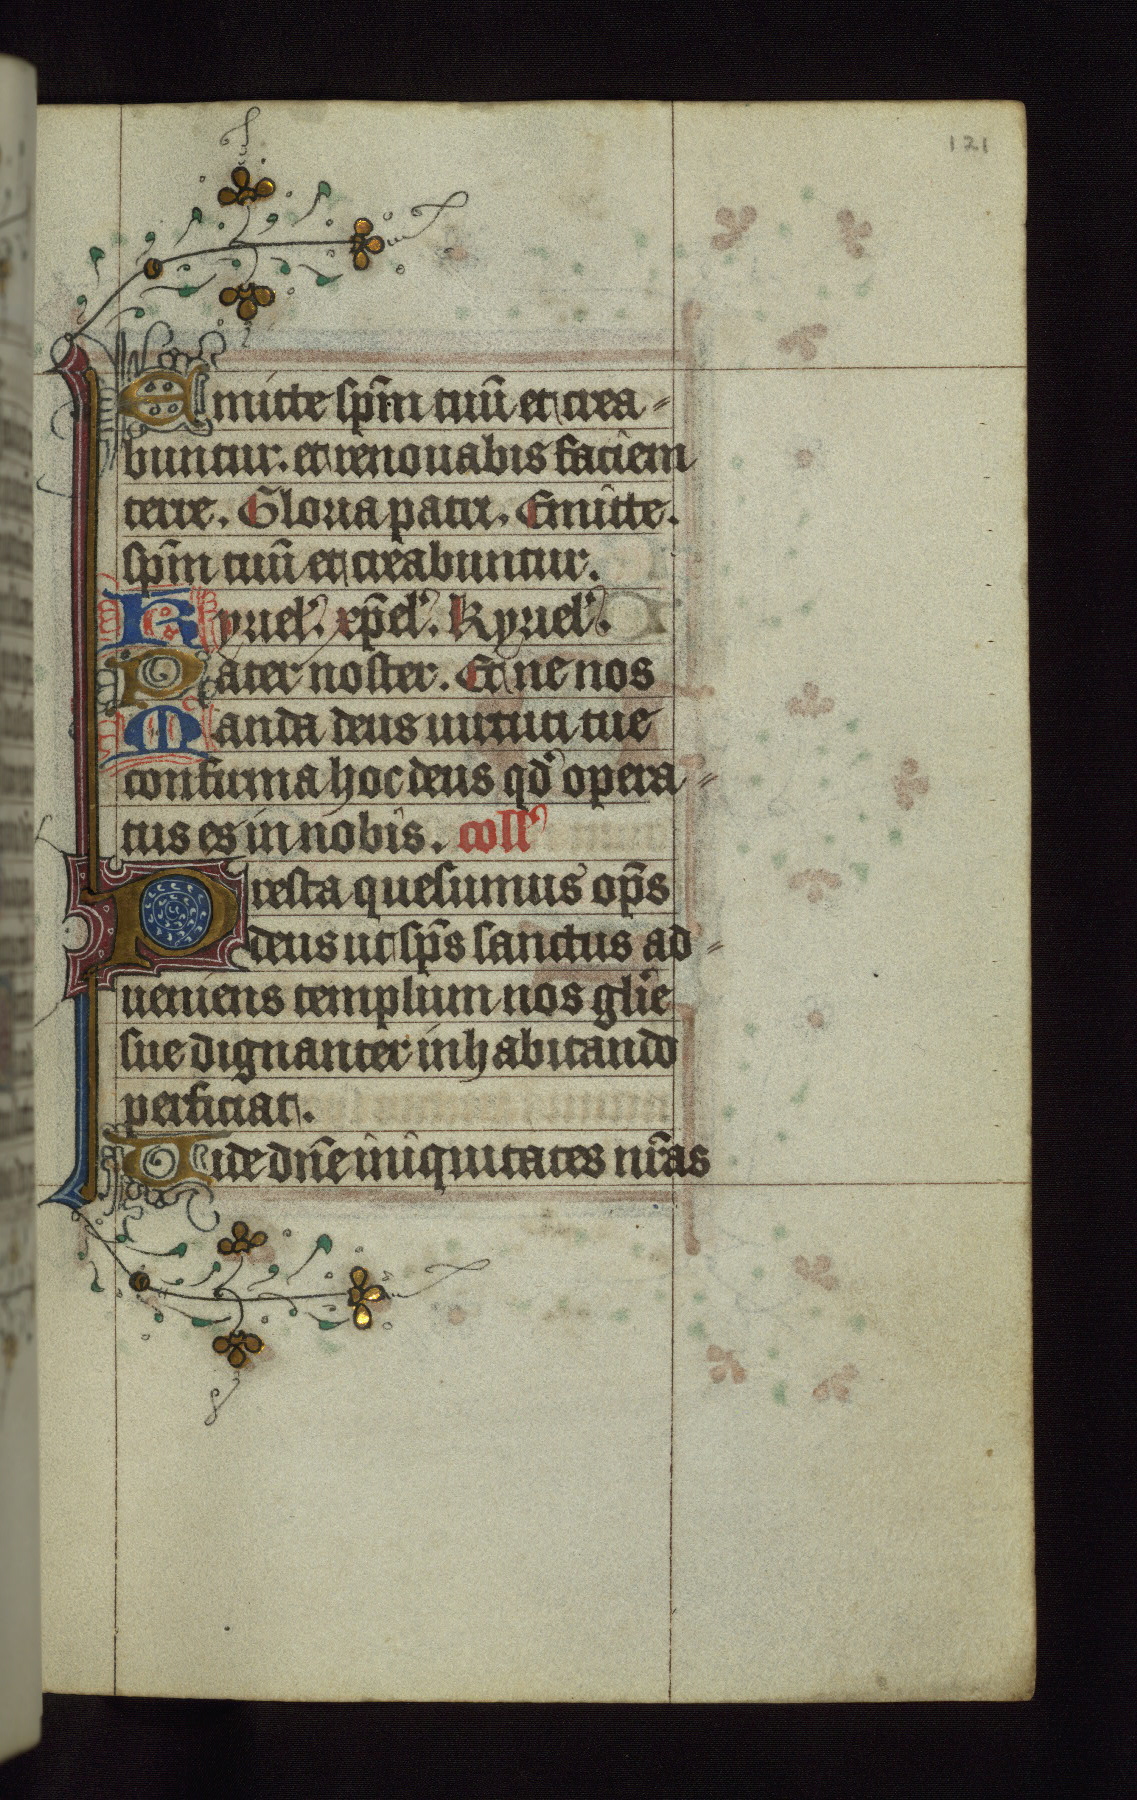 121
Emitte sp̄m tuū et crea-
buntur. et renouabis faciem
terre. Gloria patri. Emitte.
sp̄m tuū et creabuntur.
Kyriel'. xp̄el'. Kyriel'.
Pater noster. Et ne nos
Manda deus uirtuti tue
confirma hoc deus qd' opera-
tus es in nobis. coll'
Presta quesumus op̄s
deus ut sp̄s sanctus ad-
ueniens templum nos glīe
sue dignanter inhabitando
perficiat.
Uide dn̄e iniquitates nr̄as